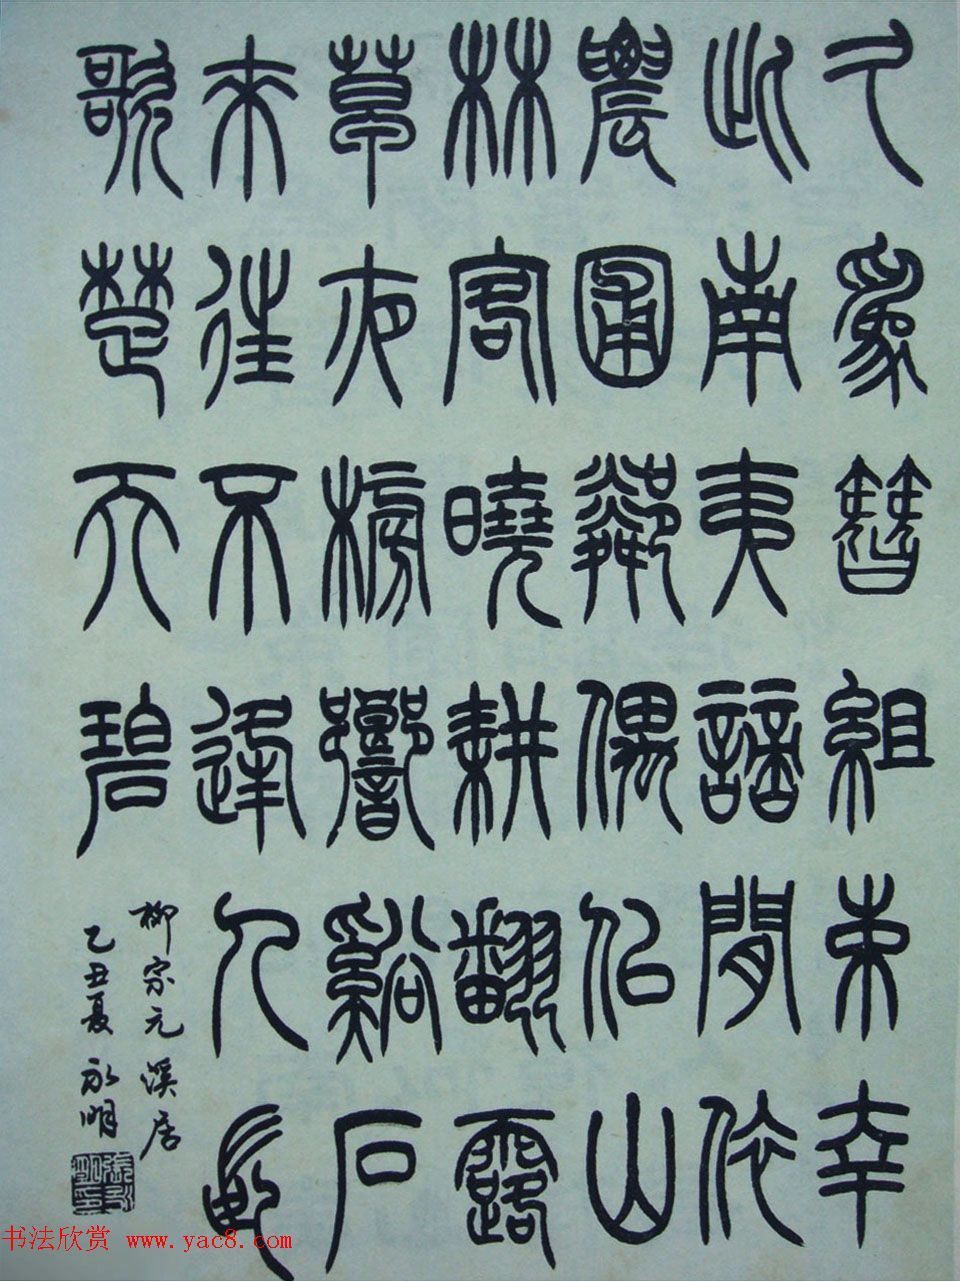 久爲簪組束幸
此南夷謫閒依
農圃鄰偶似山
林客曉耕翻露
草夜榜響谿石
來往不逢人長
歌楚天碧
柳宗元溪居
乙丑夏永明
书法欣赏 www.yac8.com